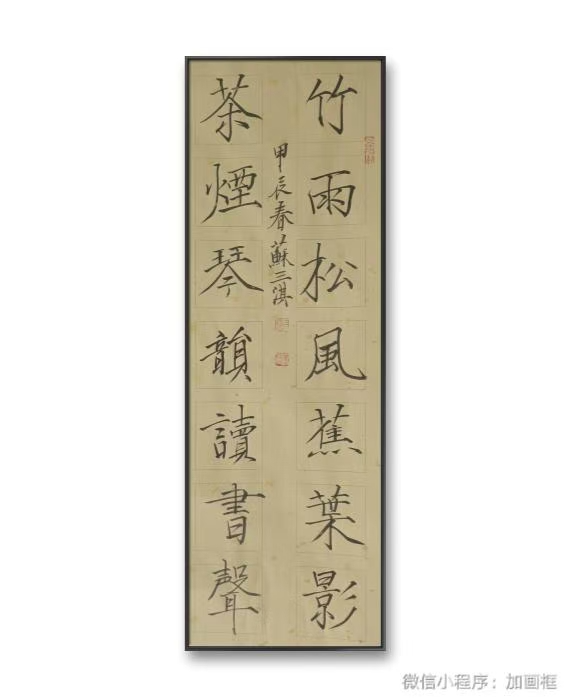 竹雨松風蕉葉影
茶煙琴韻讀書聲
甲辰春蘇三淇
微信小程序：加画框